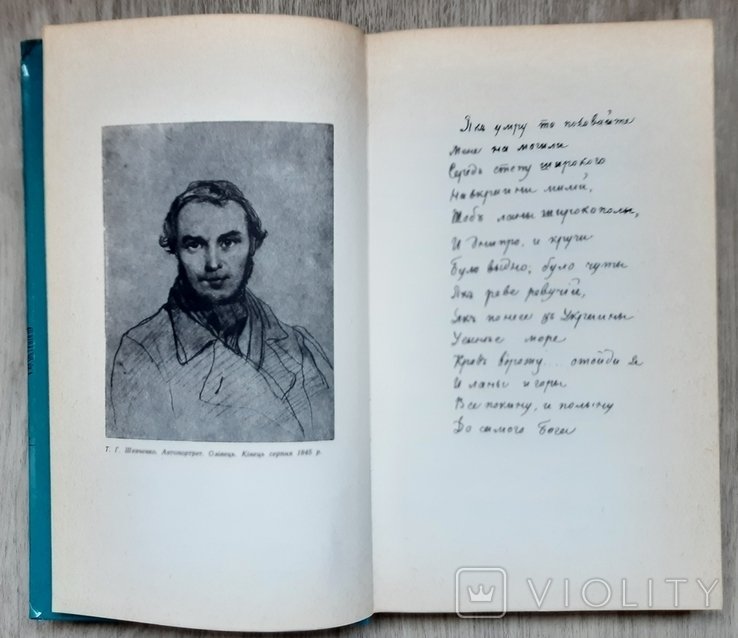 Т. Г. Шевченко. Автопортрет. Олівець. Кінець серпня 1845 р.
Якъ умру то поховайте
Мене на могили
Середъ степу широкого
На вкраини милій,
Щобъ ланы широкополы,
И Днипро, и кручи
Було выдно, було чуты
Якъ реве ревучій,
Якъ понесе зъ Украины
У синее море
Кровъ ворожу... отойди я
И ланы и горы
Все покыну, и полыну
До самого Бога
VIOLITY